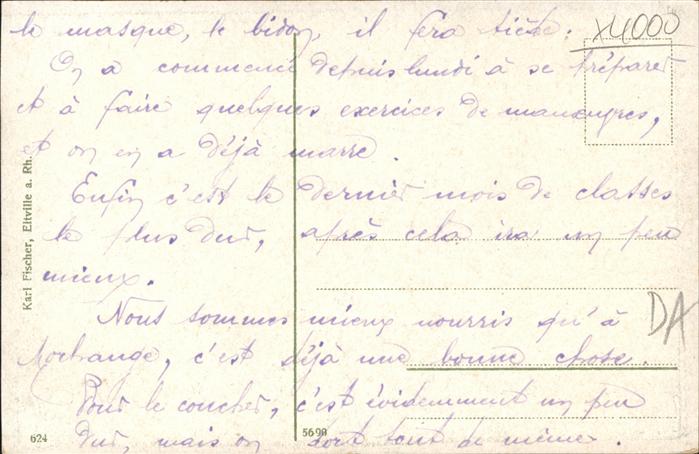 le masque, le bidon, il fera tiède.
X4000
On a commencé depuis lundi à se préparer
et à faire quelques exercices de manœuvres,
et on en a déjà marre.
Enfin c'est le dernier mois de classes
le plus dur, après cela ira un peu
mieux.
Nous sommes mieux nourris qu'à
Morhange, c'est déjà une bonne chose.
Pour le coucher, c'est évidemment un peu
dur, mais on dort tout de même.
Karl Fischer, Eltville a. Rh.
DA
624
5690